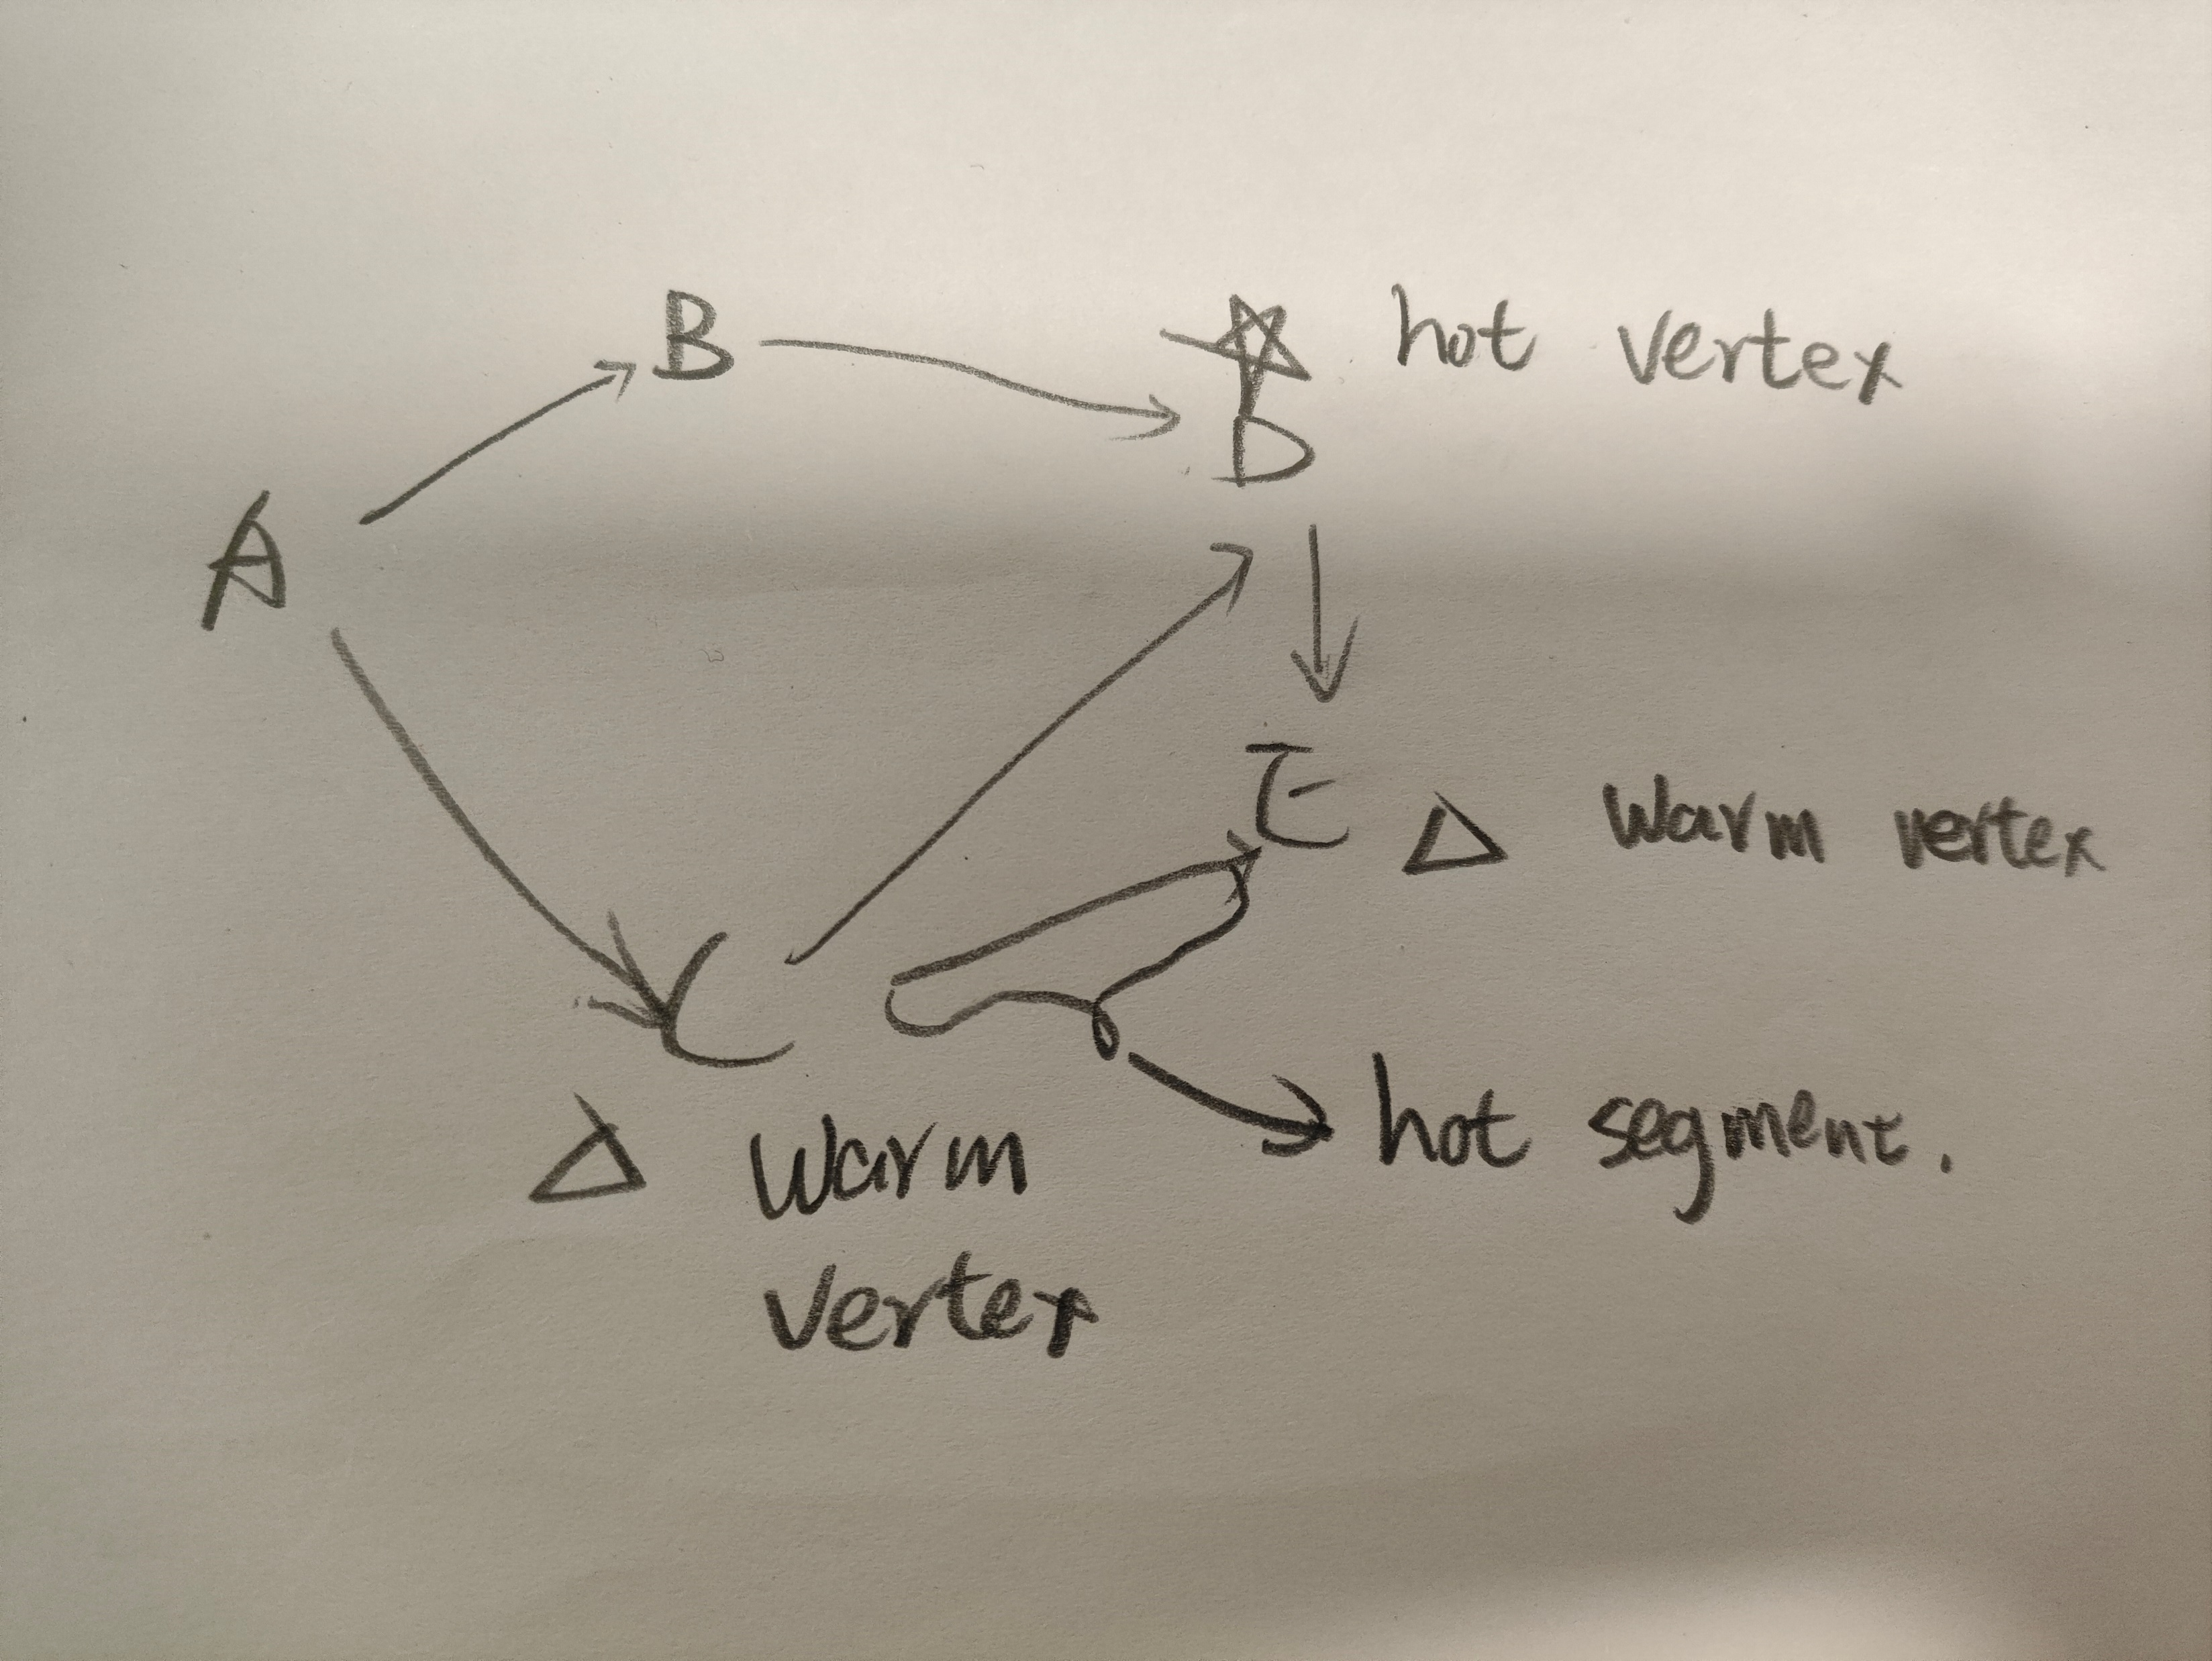 B
hot vertex
D
A
E
warm vertex
C
hot segment.
warm
vertex